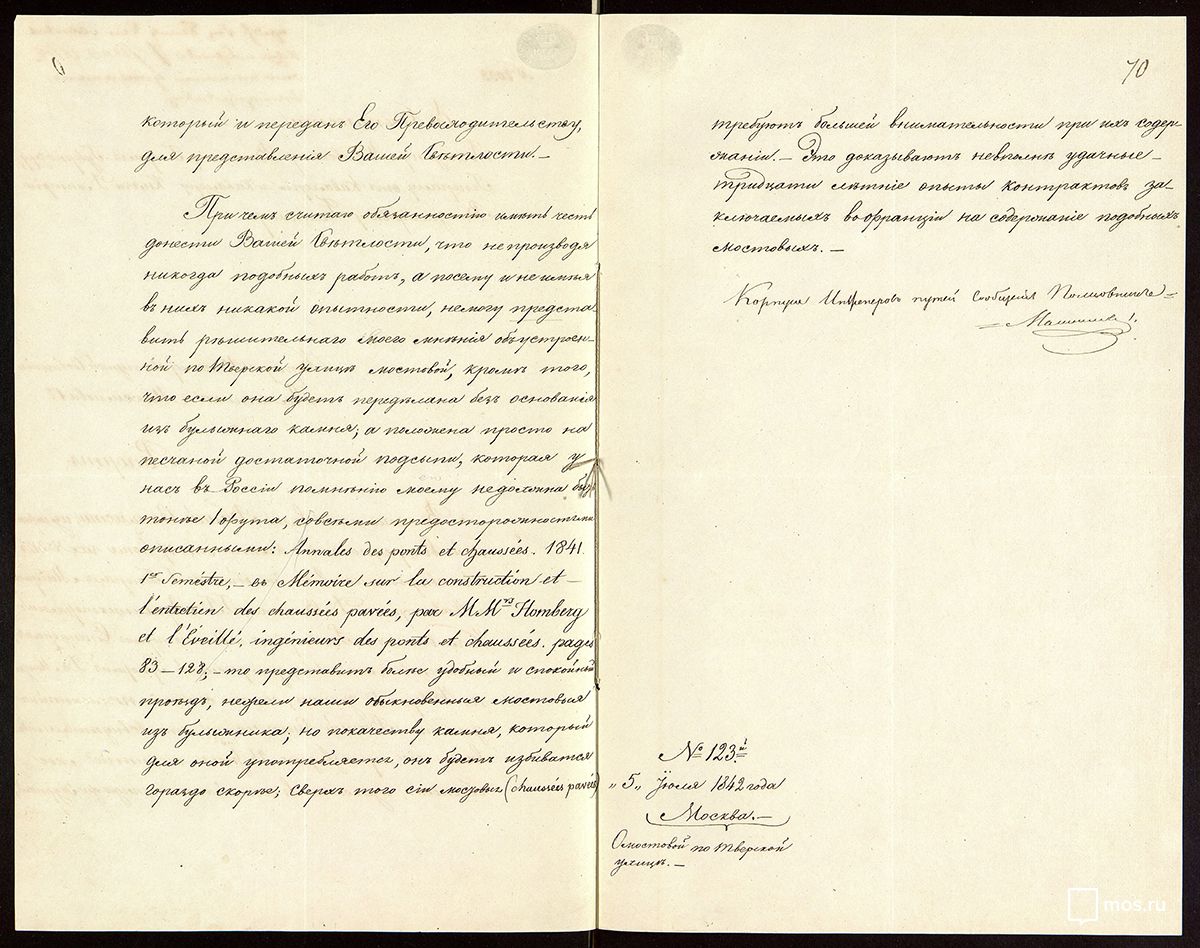 который и передань Его Превосходительству,
для представленія Вашей Свѣтлости. —
При чемъ считаю обязанностію имѣть честь
донести Вашей Свѣтлости, что не производя
никогда подобныхъ работъ, а посему и не имѣя
въ нихъ никакой опытности, немогу предста-
вить рѣшительнаго моего мнѣнія обустроен-
ной по Тверской улицѣ мостовой, кромѣ того,
что если она будетъ передѣлана безъ основанія
изъ булыжнаго камня; а положена просто на
песчаной достаточной подсыпи, которая у
насъ въ Россіи помнѣнію моему недолжна быть
тонѣе 1 фута, совсѣми предосторожностями
описанными: Annales des ponts et chaussées. 1841
1er Seméstre, — въ Mémoire sur la construction et —
l'entretien des chaussées pavées, par M Mrs Homberg
et l'Éveillé, ingénieurs des ponts et chaussées. pages
83 — 128; — то представитъ болѣе удобный и спокойный
проѣздъ, нежели наши обыкновенныя мостовыя
изъ булыжника; но покачеству камня, который
для оной употребляется, онъ будетъ избиватся
гораздо скорѣе; Сверхъ того сіи мостовыя (chaussées pavées)
70
требуютъ большей внимательности при ихъ содер-
жаніи. — Это доказываютъ невполнѣ удачные —
тридцати лѣтніе опыты контрактовъ за-
ключаемыхъ во франціи на содержаніе подобныхъ
мостовыхъ. —
Корпуса Инженеровъ путей Сообщенія Полковникъ =
№ 123.й
"5" Іюля 1842 года
Москва. —
О мостовой по Тверской
улицѣ. —
mos.ru